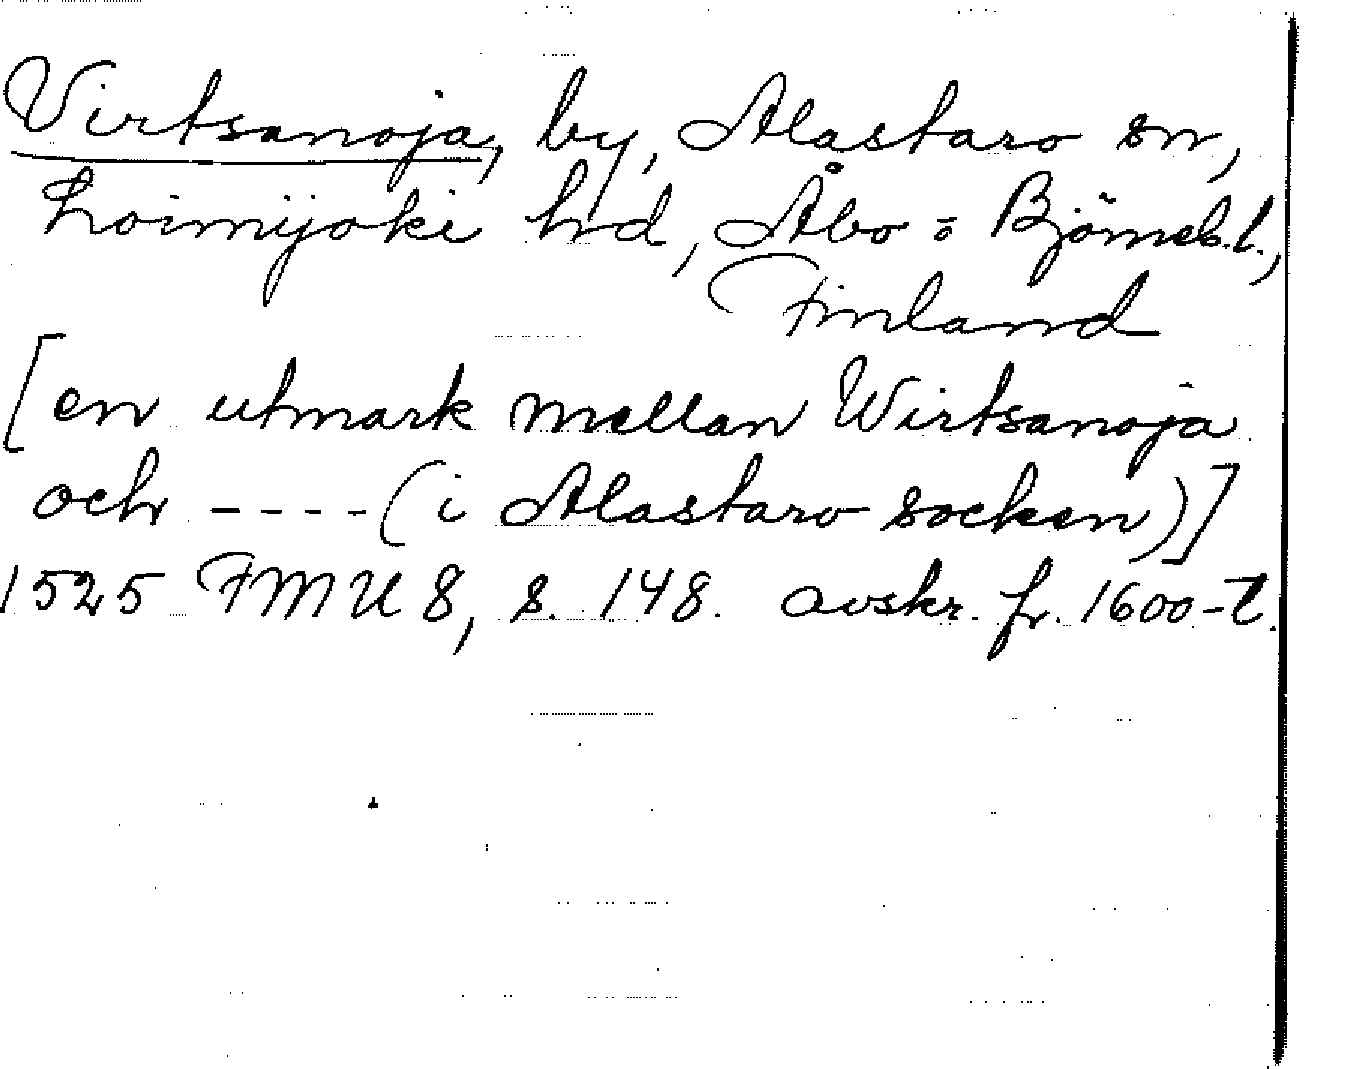 Virtsanoja, by, Alastaro sn,
Loimijoki hd, Åbo o Björneb. l.,
Finland
[en utmark mellan Wirtsanoja
och ---- (i Alastaro socken)]
1525 FMU 8, s. 148. avskr. fr. 1600-t.